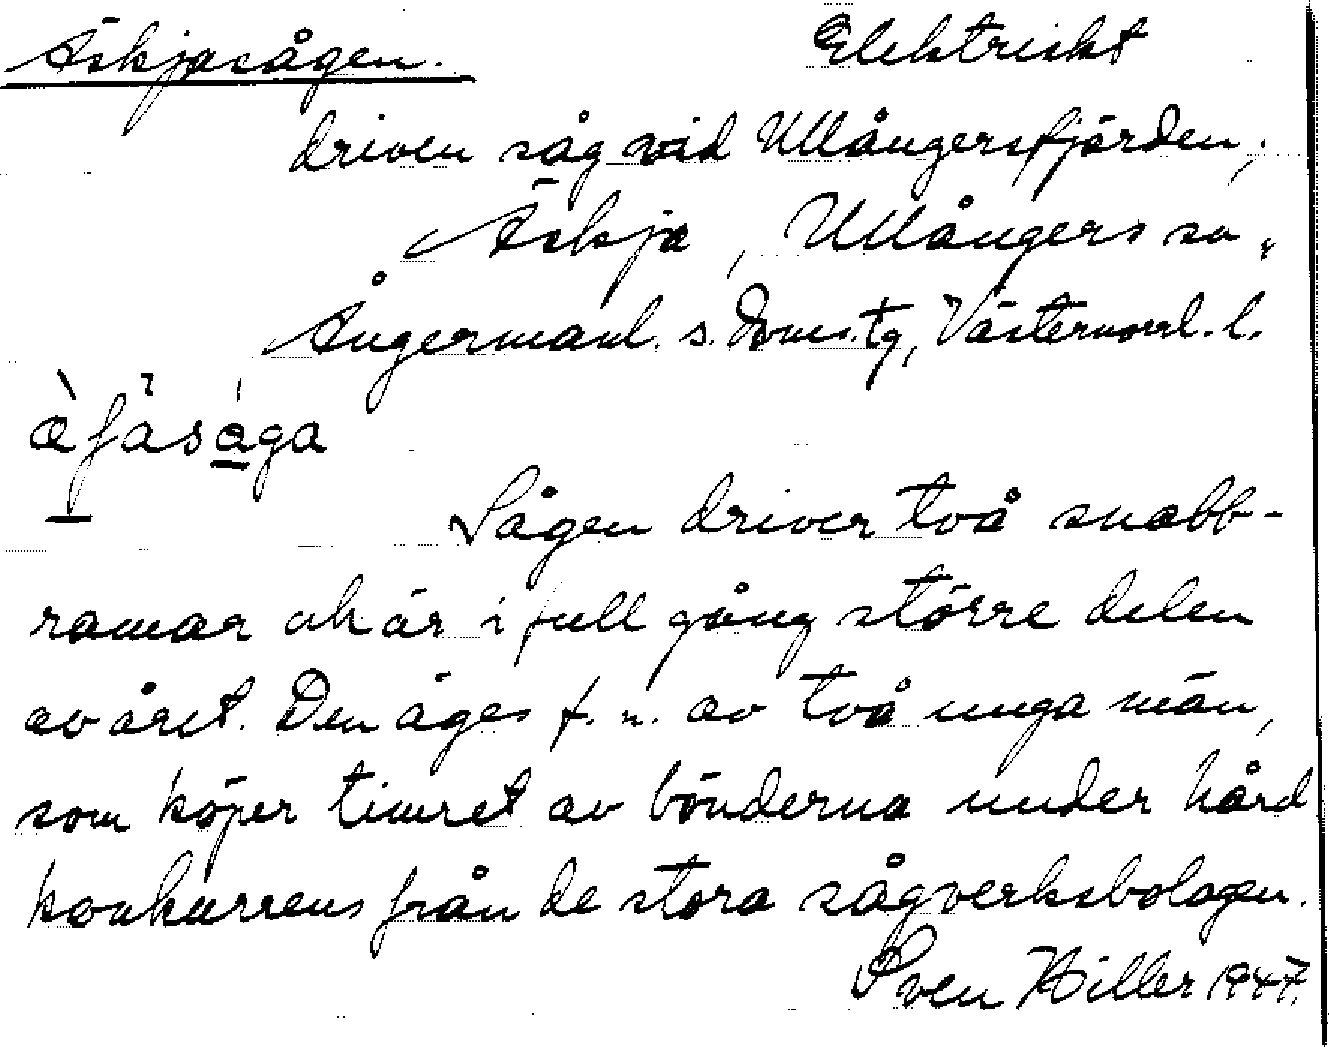 Äskjasågen. Elektriskt
driven såg vid Ullångersfjärden,
Äskja, Ullångers sn,
Ångermanl. s. Doms.tg, Västernorrl. l.
Sågen driver två snabb-
ramar och är i full gång större delen
av året. Den äges f. n. av två unga män,
som köper timret av bönderna under hård
konkurrens från de stora sågverksbolagen.
Sven Hiller 1947.